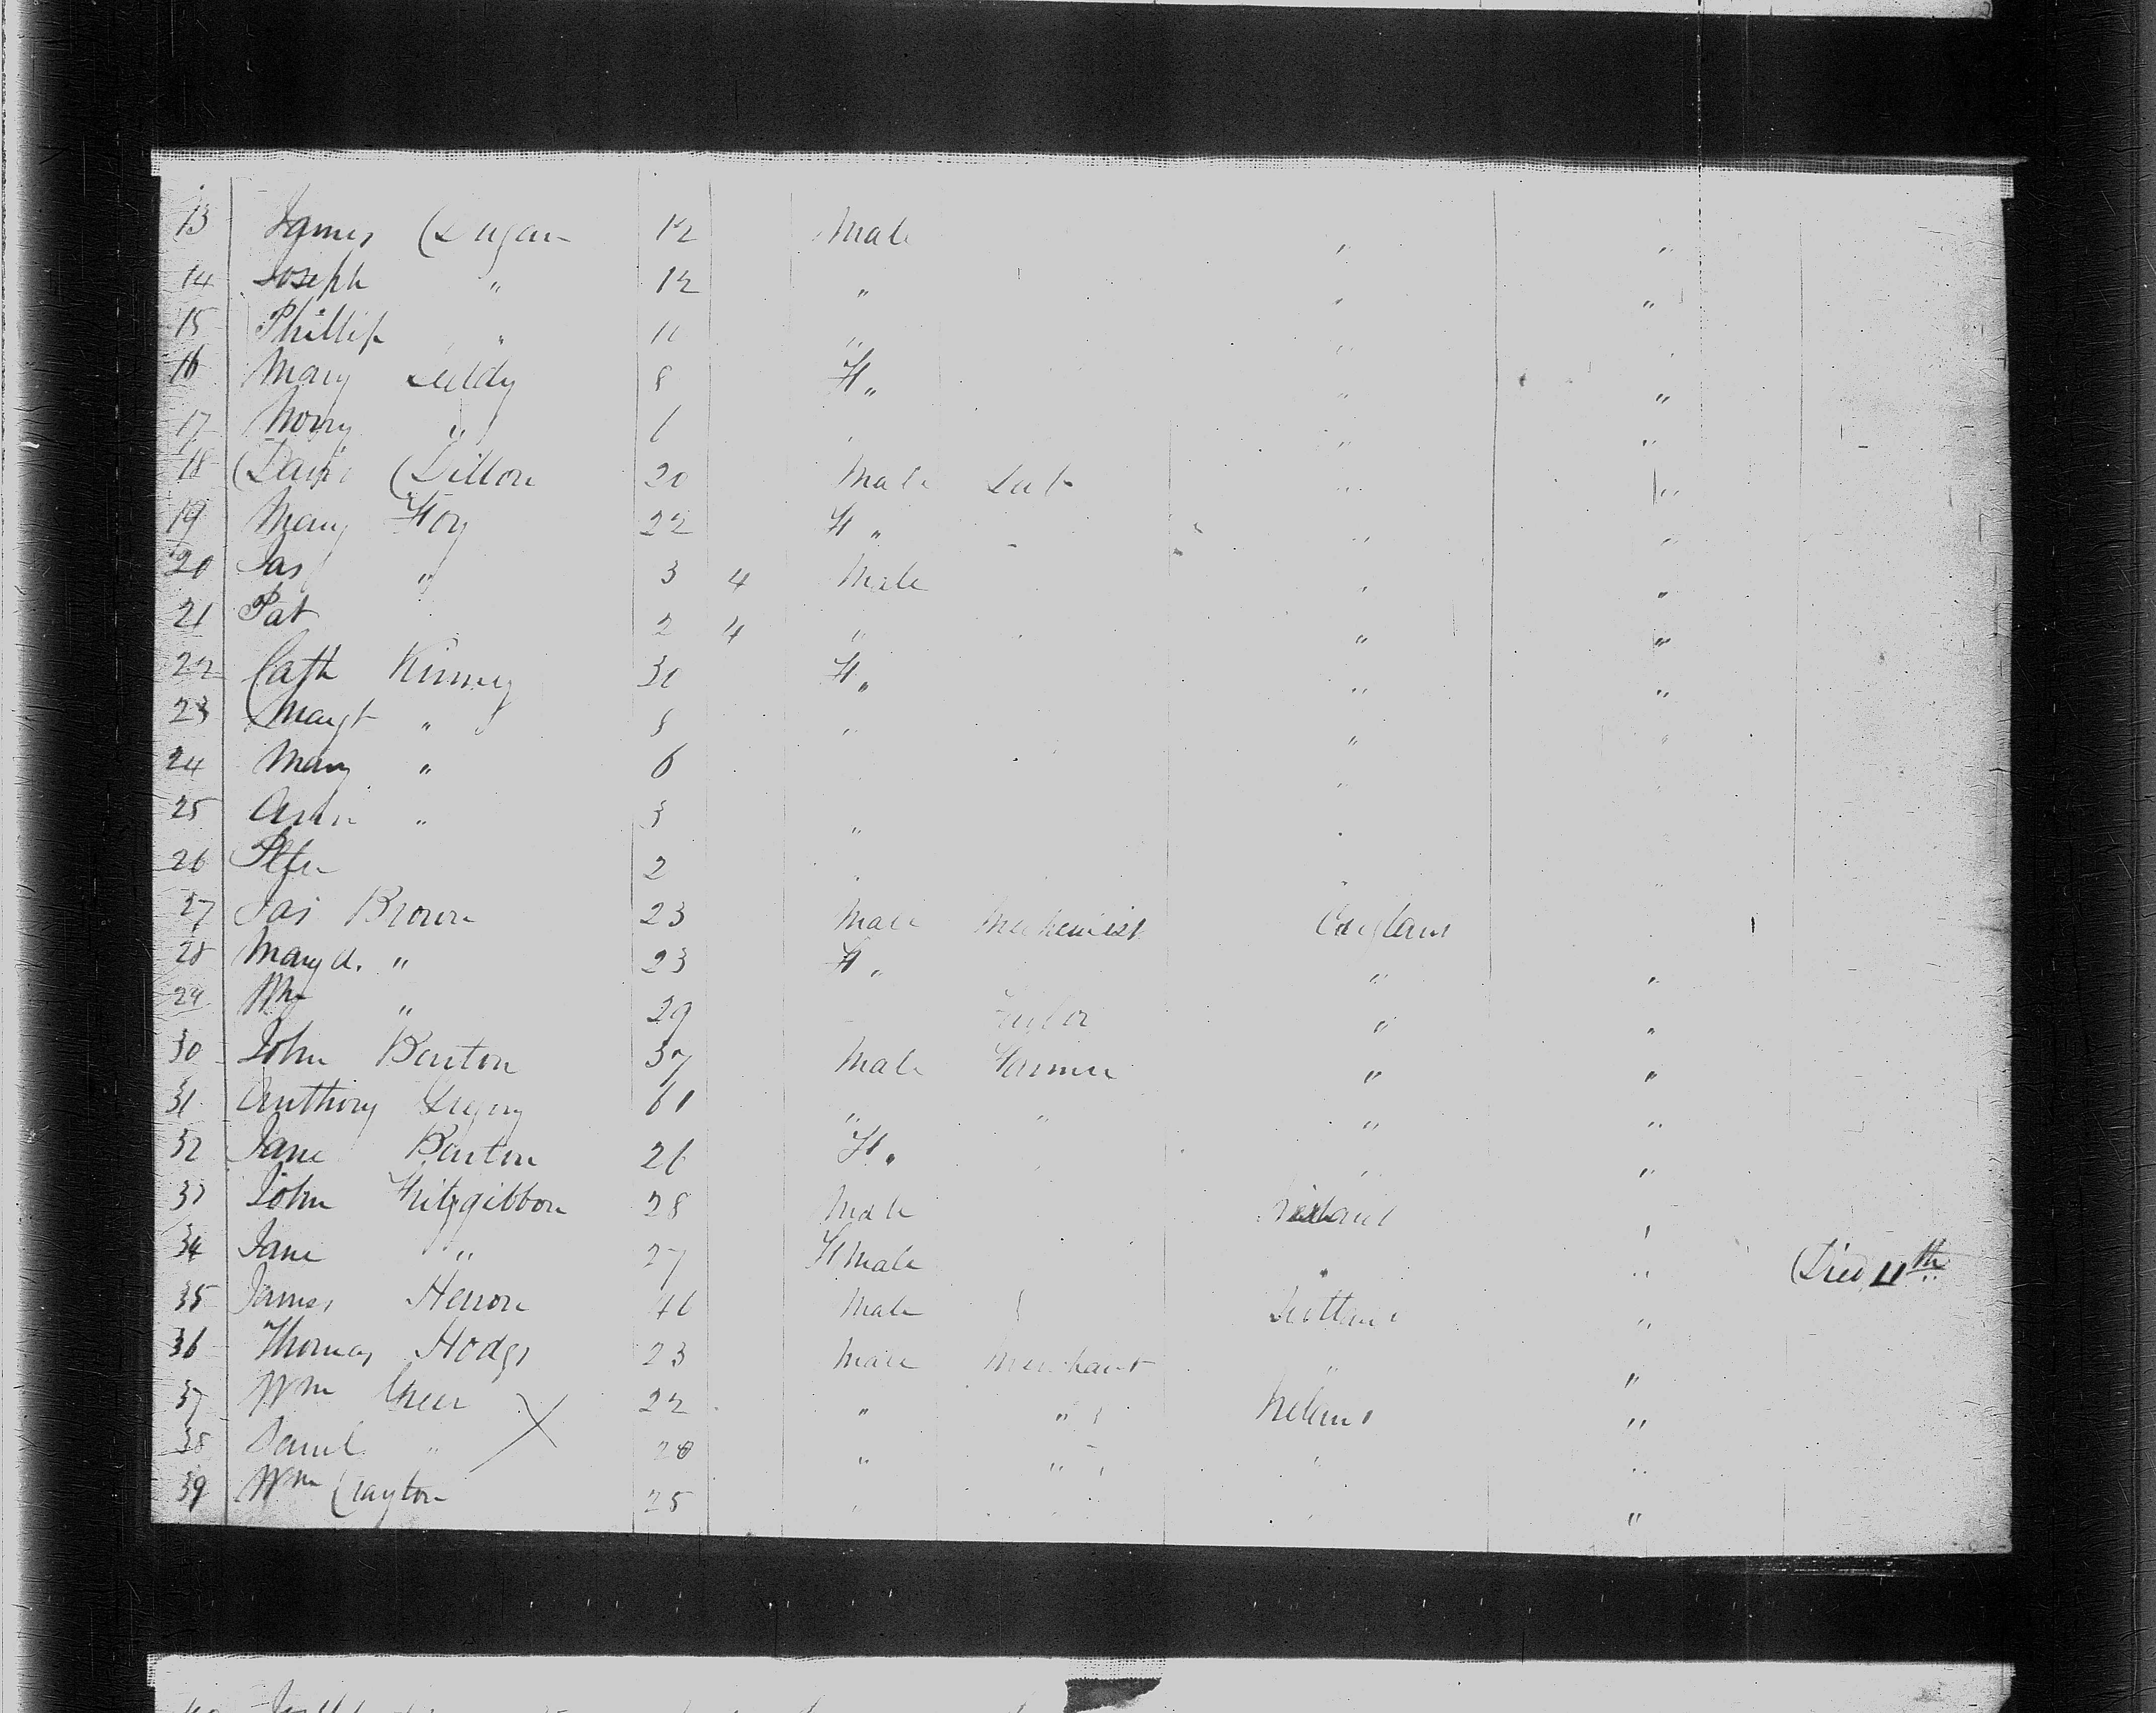 13 James Dugan 12 Male " "
14 Joseph " 12 " " "
15 Phillip " 11 " "
16 Mary Leddy 8 F " " "
17 " 6 " "
18 David Dillon 20 Male Lab " "
19 Mary Foy 22 F " " "
20 Jas " 3 4 Male " "
21 Pat 2 4 " " "
22 Cath Kinney 30 F " " "
23 Margt " 8 " " "
24 Mary " 6 "
25 Ann " 3 "
26 Peter 2
27 Jas Brown 23 Male Mechanist England
28 Mary A. " 23 F " " "
29 Wm " 29 Tailor " "
30 John Barton 37 Male Farmer " "
31 Anthony 61 " " " "
32 Jane Barton 26 F " "
33 John Fitzgibbon 28 Male Ireland "
34 Jane " 27 Fmale " Died 11th
35 James Heron 46 Male Scotland "
36 Thomas Hodgs 23 Male Merchant " "
37 Wm Greer 22 " " Ireland "
38 Saml " 20 " " "
39 Wm Crayton 25 "